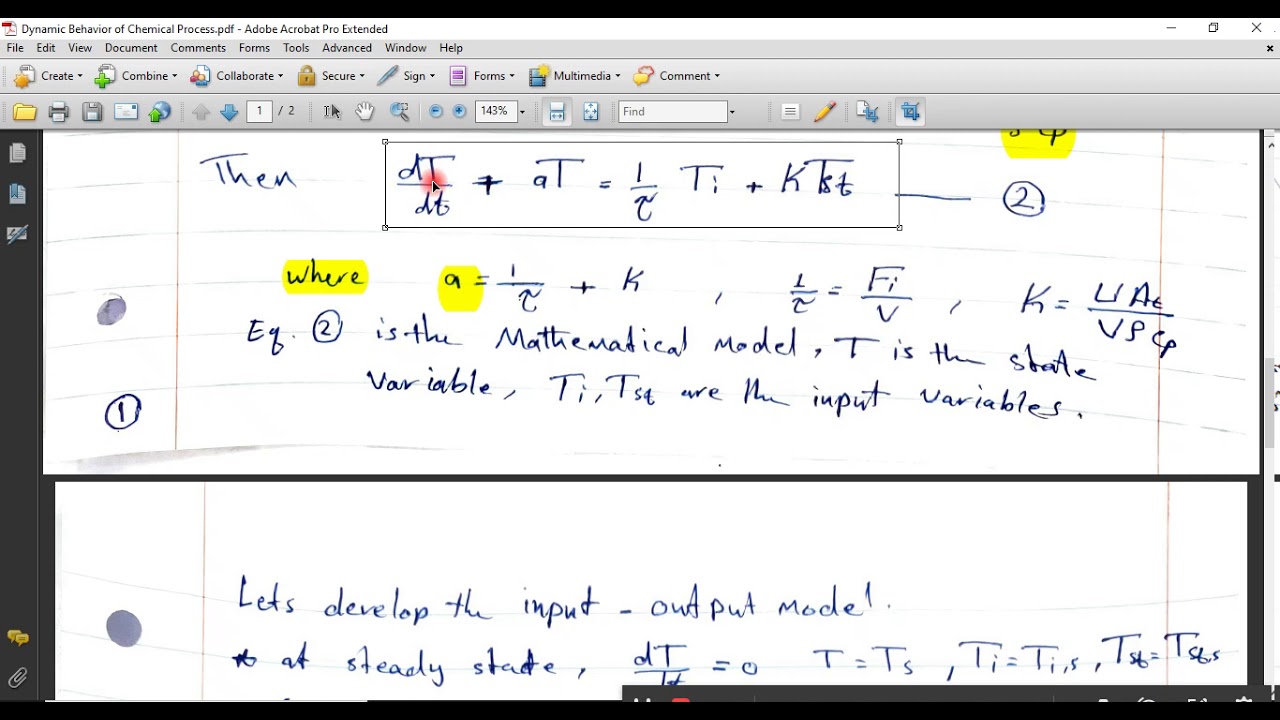 Dynamic Behavior of Chemical Process.pdf - Adobe Acrobat Pro Extended
File Edit View Document Comments Forms Tools Advanced Window Help
Create Combine Collaborate Secure Sign Forms Multimedia Comment
1 / 2 143% Find
Then dT/dt + aT = 1/τ Ti + K Tst ② 
where a = 1/τ + K , 1/τ = Fi/V , K = UAt/VρCp
Eq. ② is the Mathematical model, T is the state
variable, Ti, Tst are the input variables.
①
Lets develop the input - output model.
* at steady state, dT/dt = 0 T = Ts , Ti = Ti,s , Tst = Tst,s